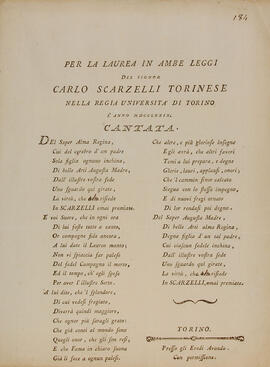 184
PER LA LAUREA IN AMBE LEGGI
DEL SIGNOR
CARLO SCARZELLI TORINESE
NELLA REGIA UNIVERSITÀ DI TORINO
L'ANNO
CANTATA.
DEl Saper Alma Regina,
Cui del cerebro d'un padre
Sola figlia ognuno inchina,
Di belle Arti Augusta Madre,
Dall'illustre vostra sede
Uno sguardo qui girate,
La virtù, che risiede
In SCARZELLI omai premiate.
E voi Suore, che in ogni ora
Di lui foste tutte a canto,
Or compagne fide ancora
A lui date il Laureo manto;
Non vi spiaccia far palese
Del fedel Compagno il merto,
Ed il tempo, ch'egli spese
Per aver l'illustre Serto.
A lui dite, che'l splendore,
Di cui vedesi fregiato,
Diverrà quindi maggiore,
Che ognor più saragli grato:
Che già conti al mondo sono
Quegli onor, che gli fen resi,
E che Fama in chiaro suono
Già li fece a ognun palesi.
Che altre, e più gloriose Insegne
E gli avrà, che altri favori
Temi a lui prepara, e degne
Glorie, lauri, applausi, onori;
Che'l cammin finor calcato
Siegua con lo stesso impegno,
E ai nuovi fregi ornato
Di lor rendasi più degno.
Del Saper Augusta Madre,
Di belle Arti alma Regina,
Degna figlia d'un tal padre,
Cui ciascun fedele inchina,
Uno sguardo qui girate,
La virtù, che risiede
In SCARZELLI, omai premiate.
TORINO.
Presso gli Eredi Avondo.
Con permissione.